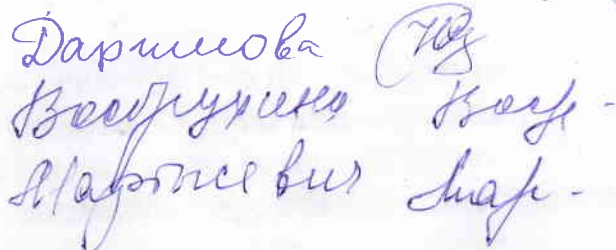 Даримова
Вострухина Востр-
Мартысевич Мар-